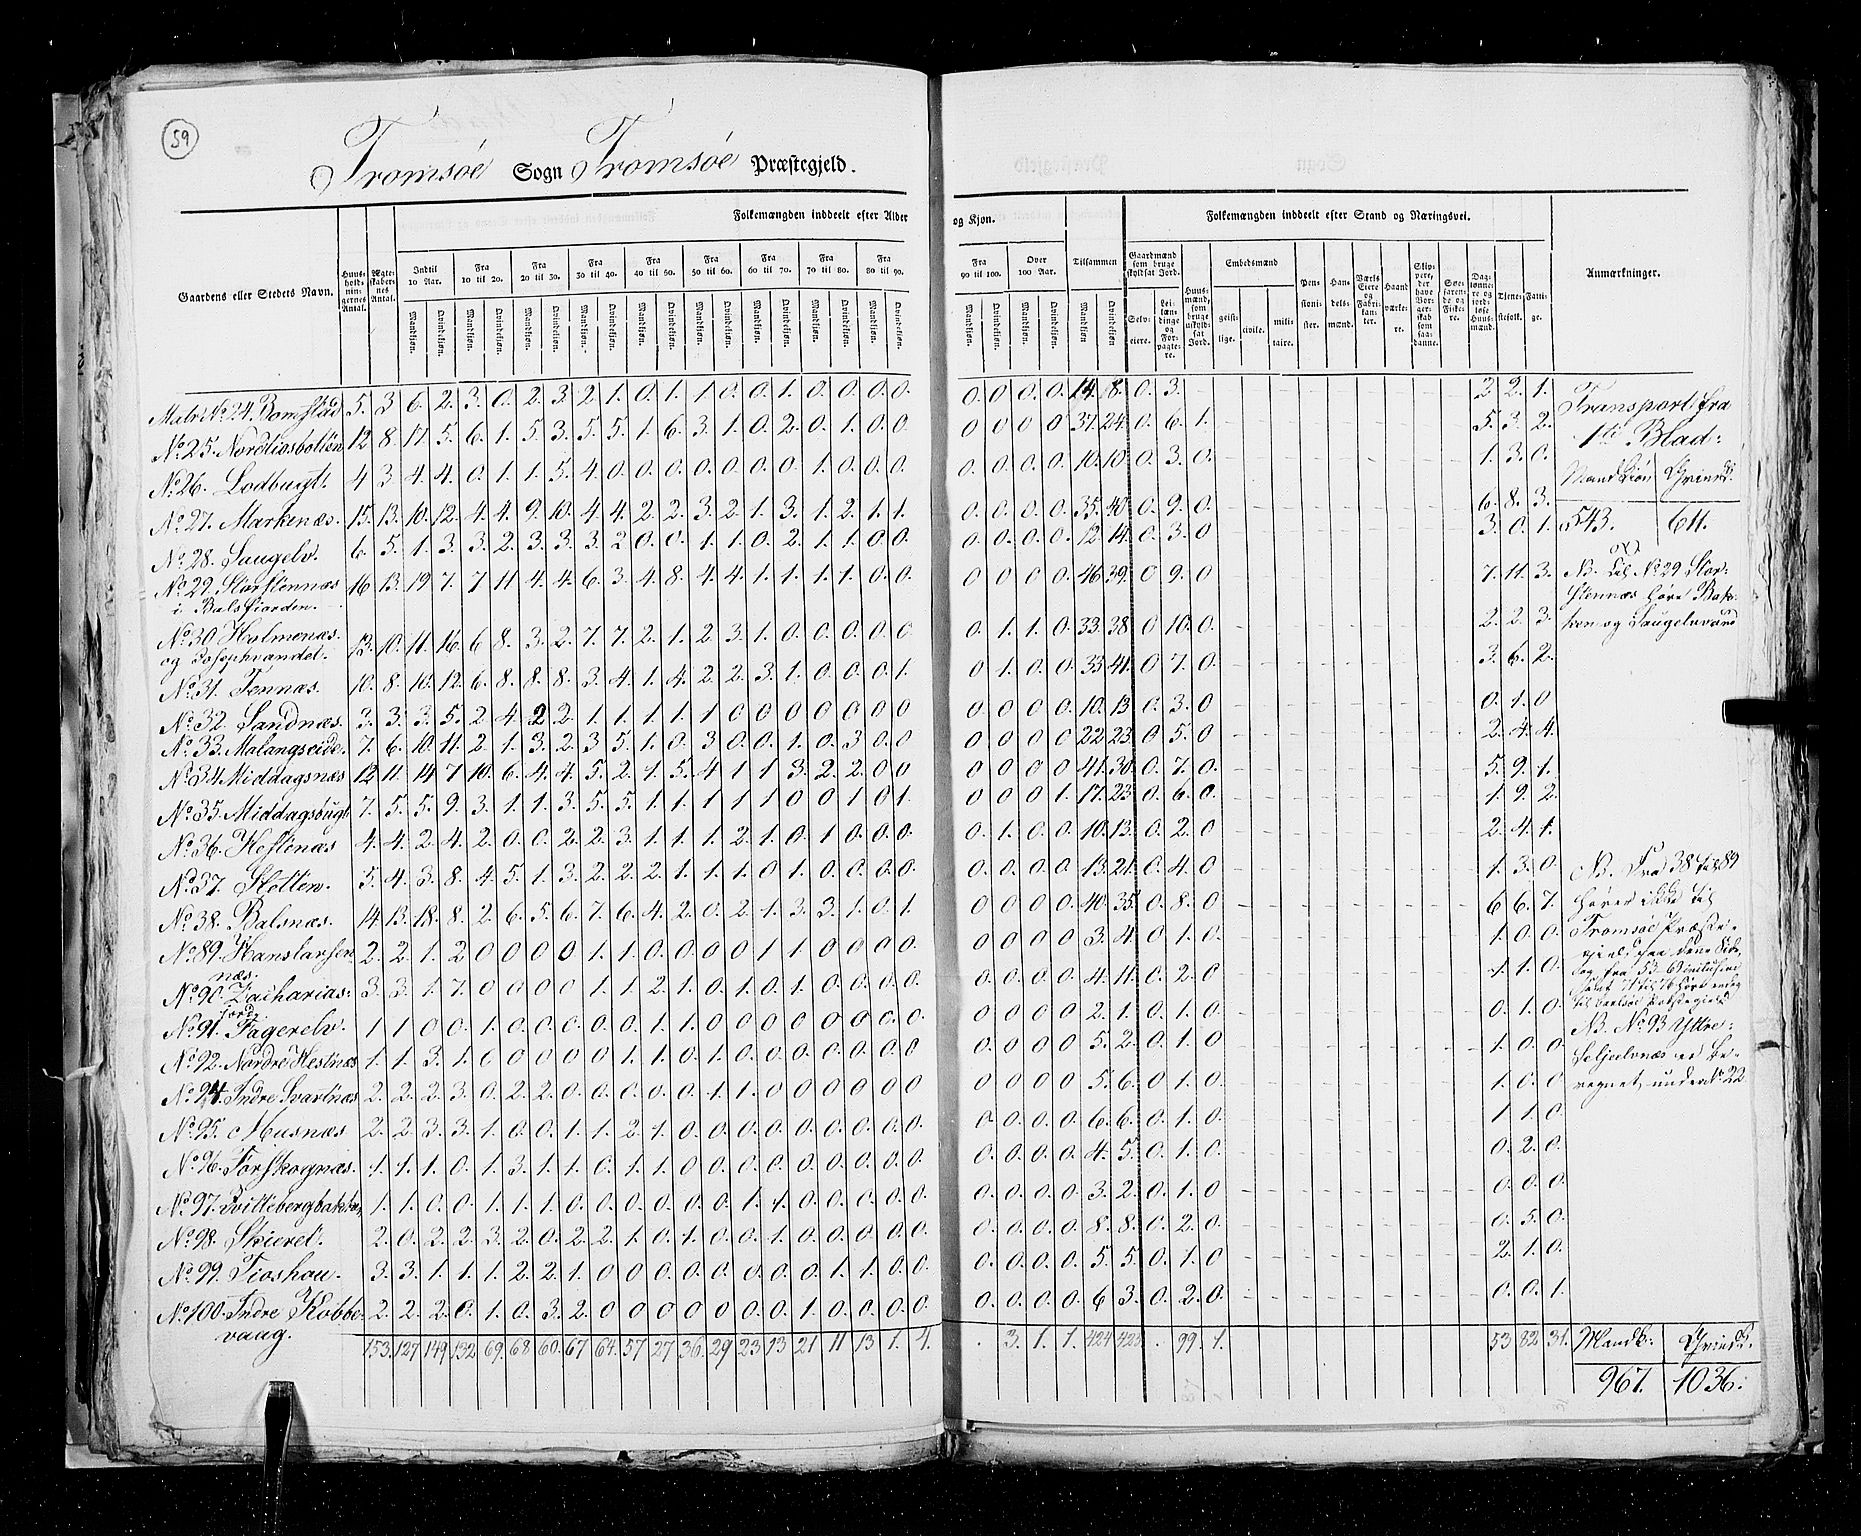 59
Tromsøe Sogn Tromsøe Præstegjeld.
Gaardens eller Stedets Navn.
Huusholdningernes Antal.
Ægteskabernes Antal.
Folkemængden inddeelt efter Alder og Kjøn.
Indtil 10 Aar. Fra 10 til 20. Fra 20 til 30. Fra 30 til 40. Fra 40 til 50. Fra 50 til 60. Fra 60 til 70. Fra 70 til 80. Fra 80 til 90. Fra 90 til 100. Over 100 Aar. Tilsammen
Mandkjøn. Qvindekjøn.
Folkemængden inddeelt efter Stand og Næringsvei.
Gaardmænd som bruge skyldsat Jord. Selveiere. Leilændinge og Forpagtere.
Huusmænd, som bruge uskyldsat Jord.
Embedsmænd geistlige. civile. militaire.
Pensionister. Handelsmænd. Haandværkere.
Daglønnere og jordløse Huusmænd. Tjenestefolk. Fattige.
Anmærkninger.
Matr: No 24. Bomstad 5. 3 6. 2. 3. 0. 2. 3. 2. 1. 0. 1. 1. 0. 0. 1. 0. 0. 0. 0. 0. 0. 0. 0. 14. 8. 0. 3. 2. 2. 1.
No 25. Nordkiosbotten 12. 8. 17. 5. 6. 1. 5. 3. 5. 5. 1. 6. 3. 1. 0. 2. 0. 1. 0. 0. 0 0 0 0 37. 24. 0. 6. 1. 5. 3. 2.
No 26. Lodbugt. 4 3. 4. 4. 0. 1. 1. 5. 4. 0 0. 0. 0. 0. 0. 0. 1. 0. 0. 0. 0. 0. 0. 0. 10. 10. 0. 3. 0. 1. 3. 0.
No 27. Markenæs. 15. 13. 10. 12. 4. 4. 9. 10. 4. 4. 2. 2. 3. 2. 1. 3. 1. 2. 1. 1. 0. 0. 0. 0. 35. 40. 0. 9. 0. 6. 8. 3.
No 28. Saugelv. 6. 5. 1. 3. 3. 2. 3. 3. 3. 2 0. 0. 1. 1. 0. 2. 1. 1. 0. 0. 0. 0. 0. 0. 12. 14. 0. 3. 0 3. 0. 1.
No 29. Storstennæs 16 13. 19 7. 7 11 4. 4. 6. 3. 4. 8. 4. 4. 1. 1. 1. 1. 0. 0. 0 0 0 0. 46. 39. 0 9. 0 7. 11. 3.
i Balsfiorden.
No 30 Holmenæs. 13. 10. 11. 16. 6 8. 3. 2. 7. 7. 2. 1. 2. 3. 1. 0. 0. 0. 0. 0 0. 1. 1. 0. 33. 38. 0 10. 0. 2. 2. 3
og Josephvandet.
No 31. Tennæs. 10. 8. 10. 12. 6. 8. 8. 8. 3. 4. 1. 4. 2. 2. 3. 1. 0. 0. 0. 1. 0 1. 0. 0. 33. 41. 0. 7. 0. 3. 6. 2.
No 32. Sandnæs. 3. 3. 3. 5. 2. 4. 2 2. 1. 1. 1. 1. 1 0 0 0 0 0 0 0 0 0 0 0. 10. 13 0. 3. 0 0. 1. 0
No 33. Malangseide. 7. 6. 10. 11. 2. 1. 3. 2. 3 5. 1. 0. 3. 0 0. 1. 0. 3 0. 0 0 0. 0. 0 22 23. 0 5. 0 2. 4. 4.
No 34. Middagsnæs 12 11. 14 7 10. 6. 4. 4. 5. 2. 1. 5. 4 1 1 3. 2. 2. 0 0 0 0 0 0 41. 30. 0. 7. 0. 5. 9. 1.
No 35. Middagsbugt 7. 5. 5. 9. 3. 1. 1. 3. 5. 5. 1. 1. 1 1 1 0 0 1 0 1. 0 0 0 1. 17. 23 0. 6. 0. 1. 9. 2.
No 36. Hestenæs 4. 4. 2. 4. 2. 0. 0. 2. 2. 3. 1. 1. 1. 2. 1. 0. 1 0. 0. 0. 0. 1. 0. 0. 10. 13. 0. 2. 0 2. 4. 1.
No 37. Sletten. 5. 4. 3. 8. 4. 5. 1. 3. 2. 2. 2. 1. 1. 1. 0 1. 0. 0. 0. 0. 0. 0. 0. 0. 13. 21. 0. 4. 0 1. 3. 0.
No 38. Balsnæs. 14 13. 18. 8. 2. 6. 5. 6. 7. 6. 4. 2. 0. 2. 1. 3. 3. 1. 0. 1. 0 0 0 0. 40. 35. 0. 8. 0 6 6. 7.
No 89. Hanslarsen 2. 2. 1. 2 0 0 0 0 1. 1. 0. 0. 0. 0 1 1 0. 0 0. 0. 0 0 0 0 3. 4. 0 1. 0. 1. 0. 0.
næs.
No 90. Zacharias: 3. 3. 1 7. 0 0 0. 0 1. 1. 2. 1. 0. 1. 0. 1. 0. 0. 0. 0. 0. 0. 0. 0. 4. 11. 0. 2. 0 1. 1. 0.
jord.
No 91. Fagerelv. 1 1 0 0. 1. 0. 0. 0. 0. 0. 1. 1. 0 0 0 0 0 0 0. 0 0 0 0 0 2. 1. 0. 1. 0. 0. 1. 0.
No 92. Nordre Hestnæs 1. 1. 3. 1. 0 0 0 0 0 1. 1. 0. 1. 0. 0. 0. 0. 0. 0. 0 0. 0 0 0 5. 2. 0. 1. 0 1. 0. 0.
No 94. Indre Svartnæs 2. 2. 2. 3. 0. 2. 2. 0. 0. 0. 0. 0. 1. 1. 0 0 0 0 0 0 0 0 0 0. 5. 6. 0 1. 0. 1. 0. 0
No 95. Musnæs 2. 2. 3. 3. 1. 0. 0. 1. 1. 2. 1. 0. 0. 0. 0. 0. 0. 0. 0. 0. 0. 0. 0. 0. 6. 6. 0. 1. 0. 1 1. 0.
No 96. Forskognæs. 1. 1. 1. 0. 1. 3. 1. 1. 0. 1. 1. 0 0 0. 0. 0. 0. 0. 0. 0. 0. 0. 0. 0. 4. 5. 0. 1. 0. 0. 2. 0.
1. 1. 0. 0. 1. 1. 1. 0. 0. 0. 0. 0. 0. 1. 1. 0. 0. 0. 0. 0. 0. 0. 0. 3. 2. 0. 1. 0 0. 0. 0.
No 98. 2. 0. 2. 2. 3. 2. 0. 2. 2. 1. 0. 1. 0. 0. 1. 0. 0. 0. 0. 0. 0. 0. 0. 0. 8. 8. 0. 2. 0. 0. 5. 0.
No 99. Tioshau. 3. 3. 1. 1. 1. 2. 2. 1. 0 0 0. 0. 0. 0. 0. 0. 1. 1. 0. 0. 0. 0. 0. 0. 5. 5. 0. 1. 0 2. 1. 0.
No 100. Indre Kobbe 2. 2. 2. 0. 1. 0. 3. 2. 0 0 0 0 0. 0. 0. 1. 0. 0. 0. 0. 0. 0. 0. 0. 6 3. 0. 2. 0. 0. 0. 1.
vaag.
153. 127 149 132 69. 68 60. 67 64. 57 27 36. 29 23 13 21 11 13 1. 4. . 3. 1. 1. 424 425 . 99. 1. 53 82 31.
Transport fra
1ste Blad:
Mandkiøn Qvindk:
543. 611.
NB. til No 29 Stor-
stennæs høre Bak-
ken og Saugelvvand
NB. Fra 38 til 89
hører ikke til
Tromsøe Præste-
gjeld
NB. No 93 Yttre-
Seljeelvnæs er be-
regnet under No 22
Mandk: Qvindk.
967. 1036.